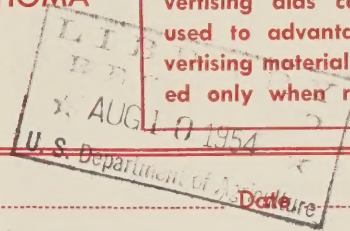 HOMA
vertising aids
used to advanta
vertising material
ed only when
LIB
AUG 10 1954
U. S. Department of Agriculture
Date